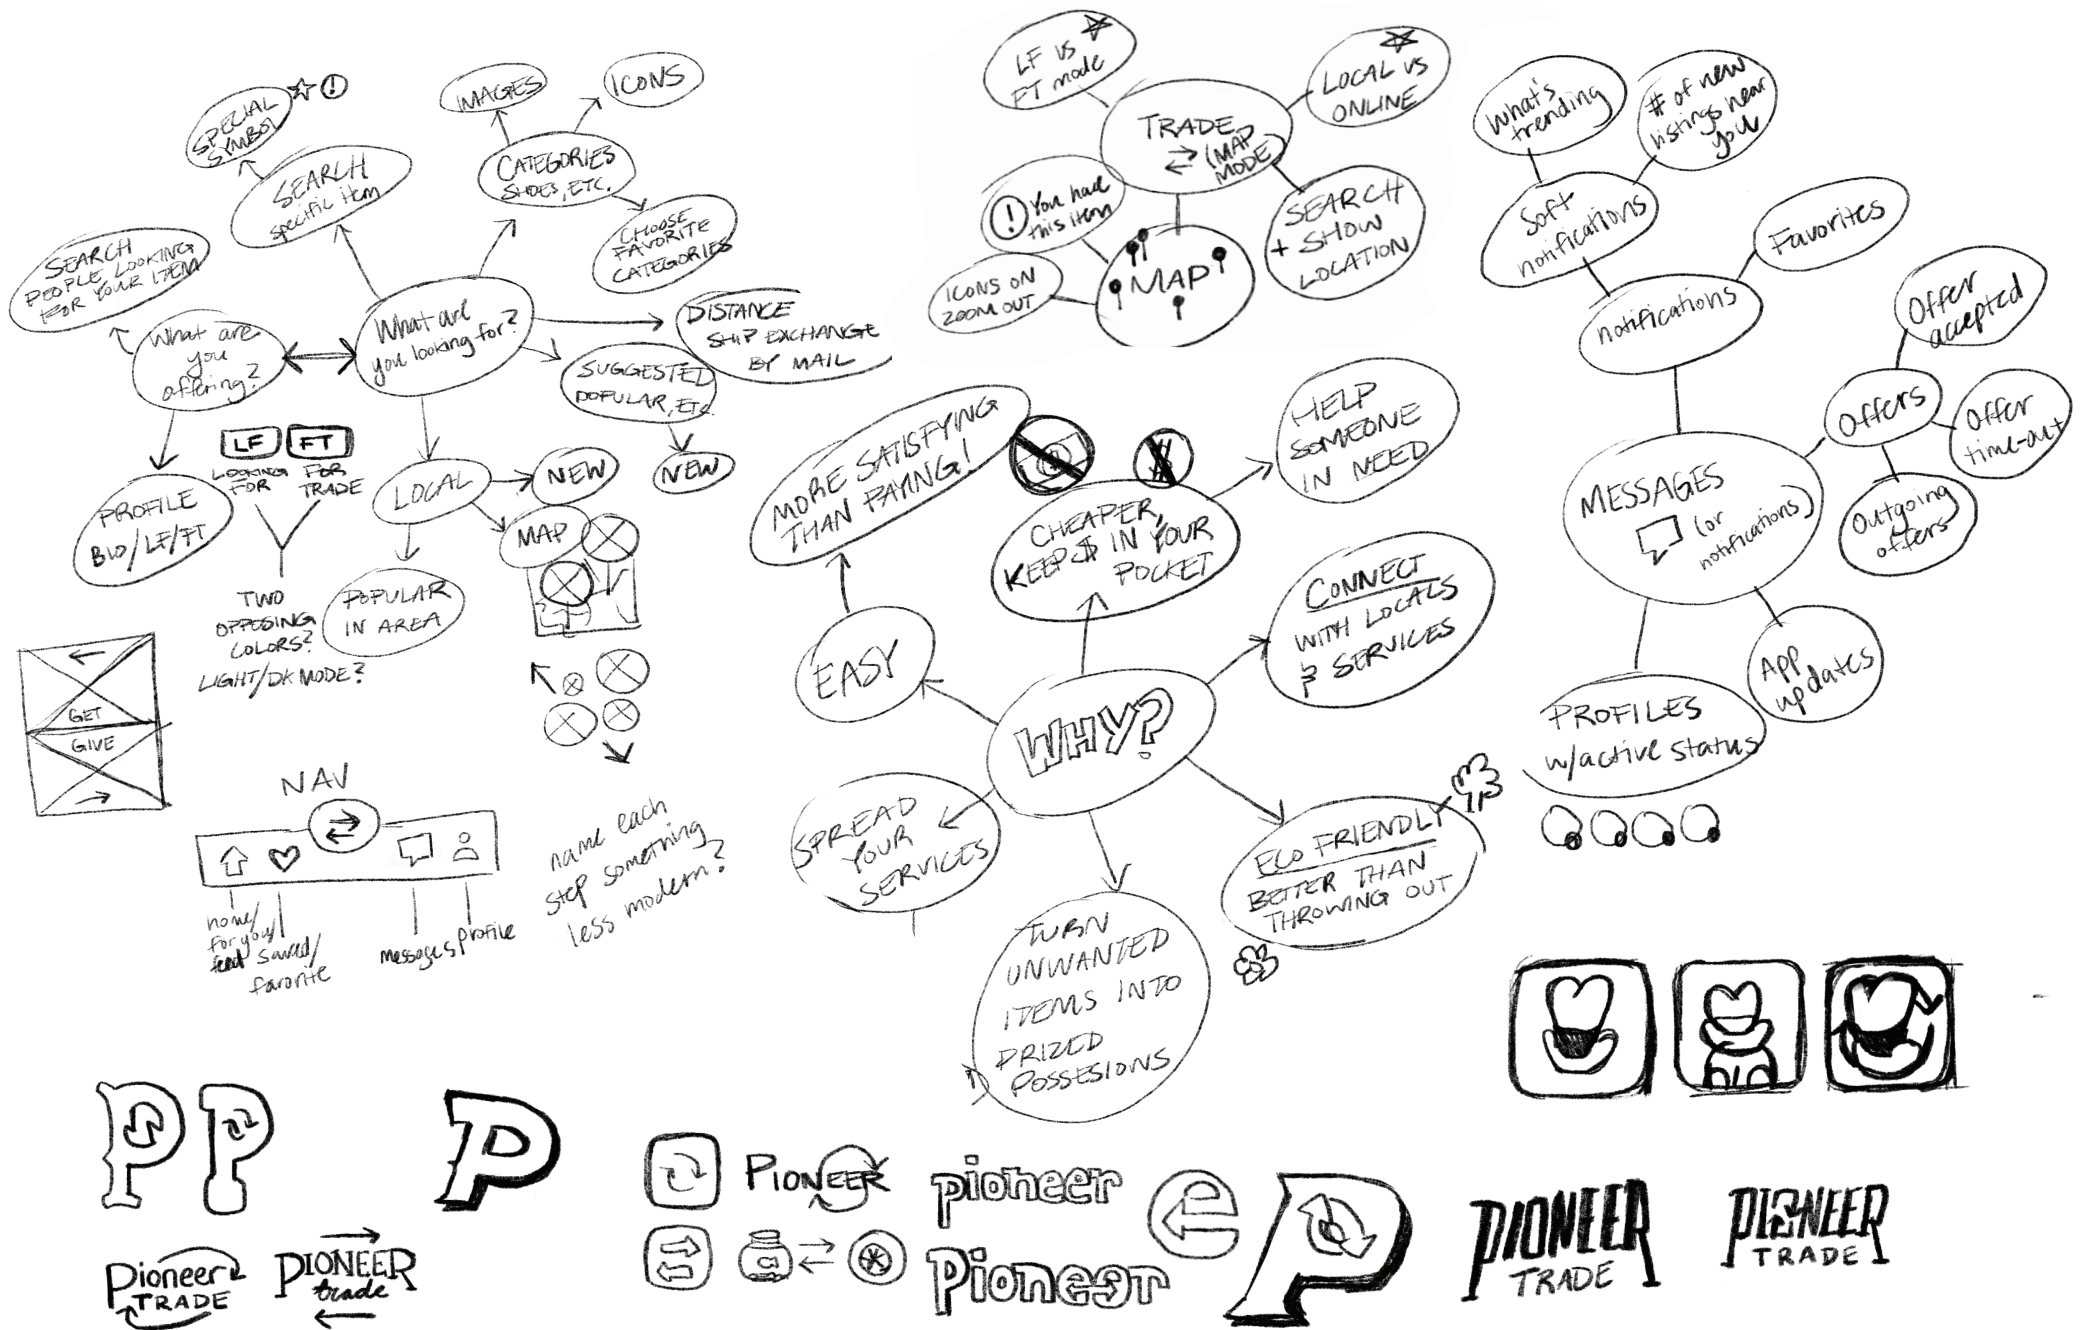 SPECIAL
SYMBOL
!
SEARCH
specific item
IMAGES
ICONS
CATEGORIES
SHOES, ETC.
CHOOSE
FAVORITE
CATEGORIES
SEARCH
PEOPLE LOOKING
FOR YOUR ITEM
What are
you
offering?
What are
you looking for?
DISTANCE
SHIP EXCHANGE
BY MAIL
SUGGESTED
POPULAR, ETC.
NEW
PROFILE
BIO/LF/FT
LF
FT
LOOKING
FOR
FOR
TRADE
TWO
OPPOSING
COLORS?
LIGHT/DK MODE?
LOCAL
NEW
MAP
POPULAR
IN AREA
GET
GIVE
NAV
home/
for you/
feed
saved/
favorite
messages
profile
name each
step something
less modern?
LF vs
FT mode
LOCAL VS
ONLINE
TRADE
(MAP
MODE)
!
You have
this item
SEARCH
+ SHOW
LOCATION
ICONS ON
ZOOM OUT
MAP
MORE SATISFYING
THAN PAYING!
$
CHEAPER,
KEEP $ IN YOUR
POCKET
HELP
SOMEONE
IN NEED
EASY
CONNECT
WITH LOCALS
& SERVICES
WHY?
SPREAD
YOUR
SERVICES
TURN
UNWANTED
ITEMS INTO
PRIZED
POSSESIONS
ECO FRIENDLY
BETTER THAN
THROWING OUT
What's
trending
# of new
listings near
you
Soft
notifications
Favorites
notifications
Offer
accepted
Offers
Offer
time-out
Outgoing
offers
MESSAGES
(or
notifications)
App
updates
PROFILES
w/active status
P
P
P
Pioneer
TRADE
PIONEER
trade
PIONEER
pioneer
Pioneer
e
P
PIONEER
TRADE
PIONEER
TRADE